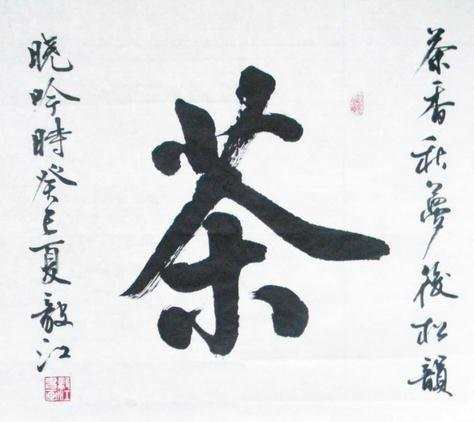 茶香秋夢後松韻
茶
晓吟時癸巳夏毅江